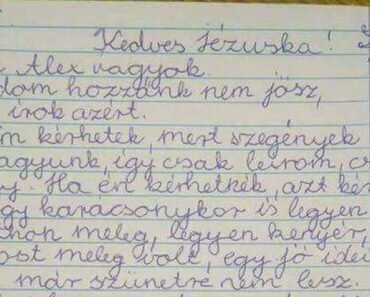 Kedves Jézuska!
Alex vagyok.
hozzánk nem jösz,
írok azért.
kérhetek, mert szegények
így csak leírom,
Ha én kérhetnék, azt
karácsonykor is legyen
meleg, legyen kenyér,
meleg volt, egy jó
már szünetre nem lesz.